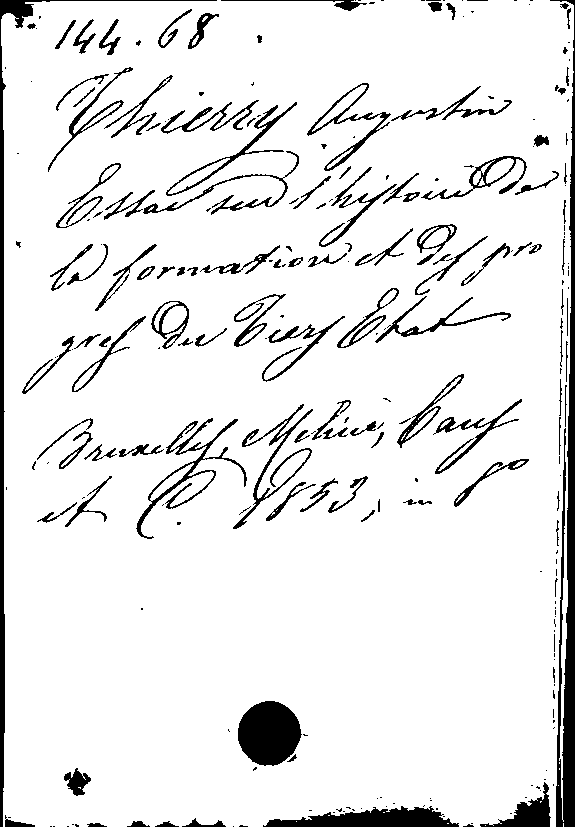 144.68.
Thierry Augustin
Essai sur l'histoire de
la formation et des pro
grès du Tiers Etat
Bruxelles, Meline, Cans
et C. 1853, in 8º